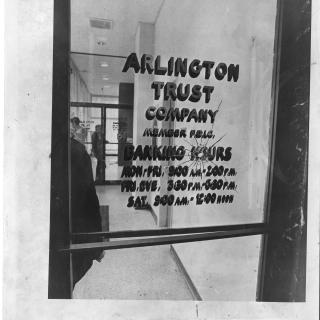 ARLINGTON
TRUST
COMPANY
MEMBER F.D.I.C.
BANKING HOURS
MON-FRI. 9:00 A.M.-2:00 P.M.
FRI. EVE. 3:30 P.M.-6:30 P.M.
SAT. 9:00 A.M.-12:00 NOON